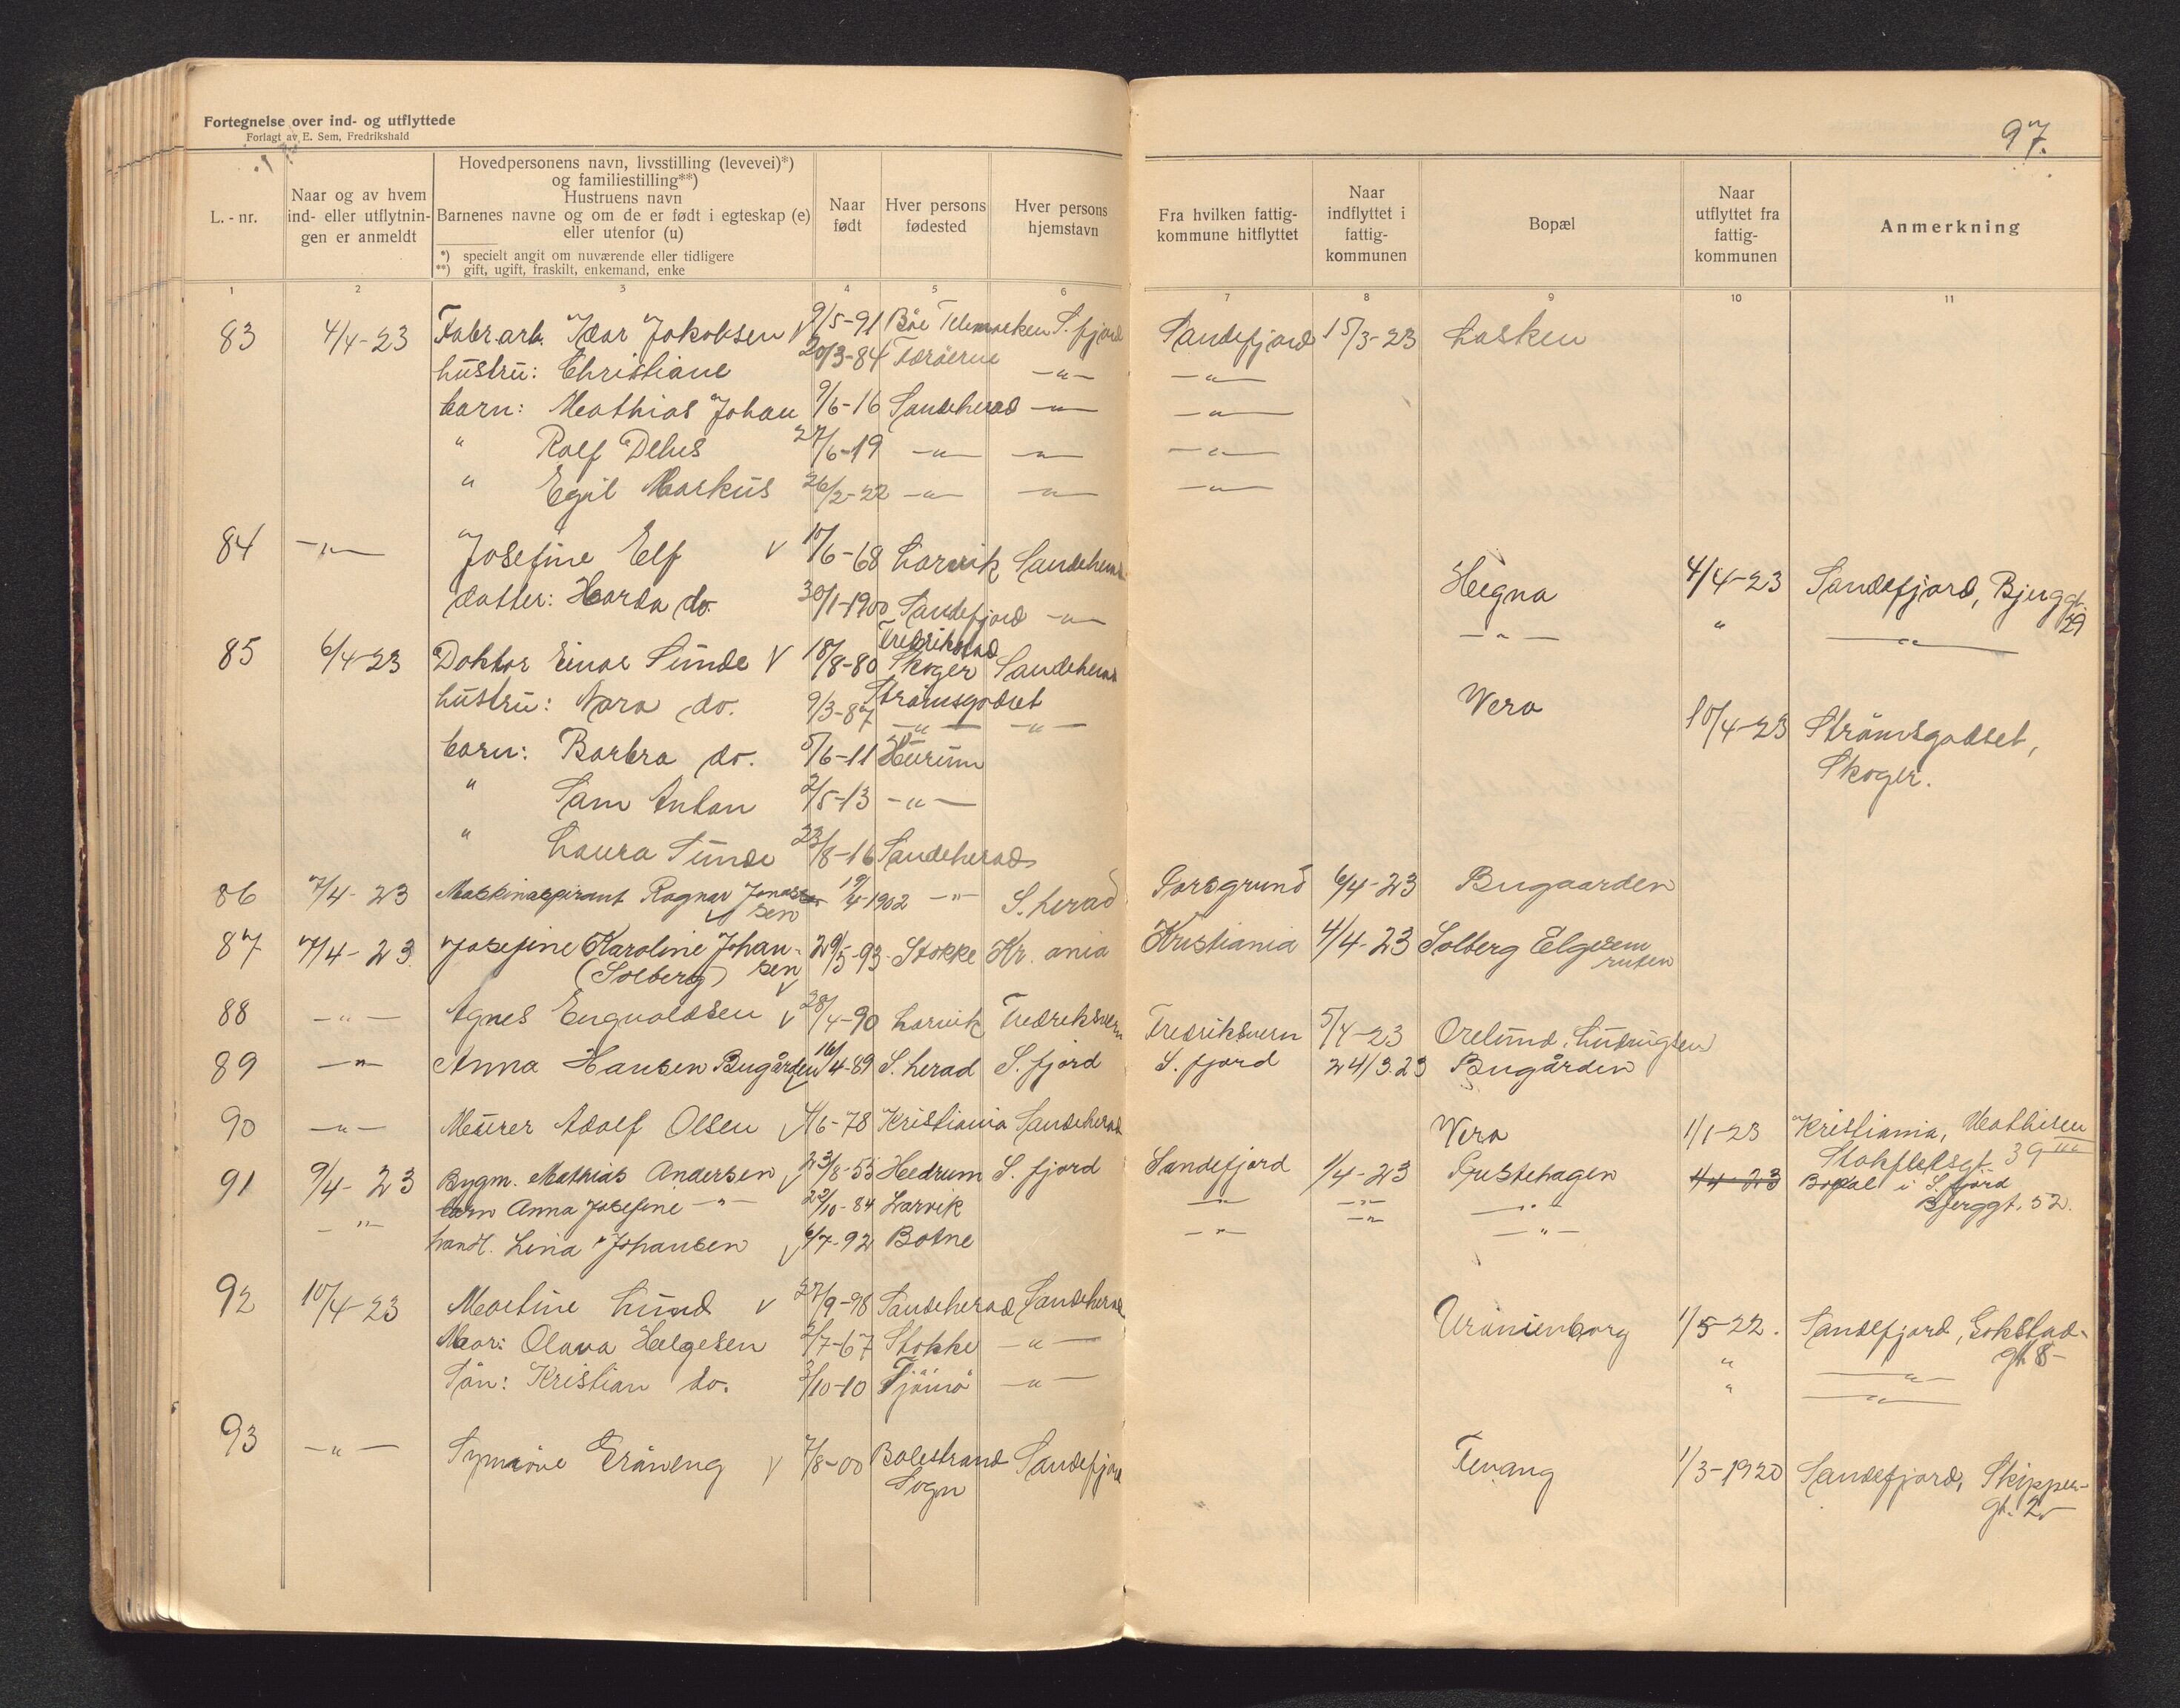 Fortegnelse over ind- og utflyttede
Forlagt av E. Sem, Fredrikshald
97.
L.-nr.
Naar og av hvem ind- eller utflytningen er anmeldt
Hovedpersonens navn, livsstilling (levevei)*)
og familiestilling**)
Hustruens navn
Barnenes navne og om de er født i egteskap (e)
eller utenfor (u)
*) specielt angit om nuværende eller tidligere
**) gift, ugift, fraskilt, enkemand, enke
Naar født
Hver persons fødested
Hver persons hjemstavn
Fra hvilken fattig-kommune hitflyttet
Naar indflyttet i fattig-kommunen
Bopæl
Naar utflyttet fra fattig-kommunen
Anmerkning
1 2 3 4 5 6 7 8 9 10 11
83 4/4-23 Fabr.arb. Idar Jakobsen V 9/5-91 Böe Telemarken S.fjord Sandefjord 15/3-23 Lasken
hustru: Christiane 20/3-84 Færöerne -"- -"-
barn: Mathias Johan 9/6-16 Sandeherad -"- -"-
" Rolf 27/6-19 -"- -"- -"-
" Egil Markus 26/2-22 -"- -"- -"-
84 -"- Josefine Elf V 10/6-68 Larvik Sandeherad Hegna 4/4-23 Sandefjord, Bjerggt. 29
datter: Harda do. 30/1-1900 Sandefjord -"- -"- " -"-
85 6/4-23 Doktor Einar Sunde V 18/8-80 Fredrikstad Skoger Sandeherad Vera 10/4-23 Strömsgodset,
Skoger.
hustru: Nara do. 9/3-87 Strömsgodset -"- -"-
barn: Barbra do. 5/6-11 Hurum
" Sam Anton 2/5-13 -"-
" Laura Sunde 23/8-16 Sandeherad
86 7/4-23 Maskinaspirant Ragnar Jonassen V 19/4-1902 -"- S.herad Porsgrund 6/4-23 Bugaarden
87 7/4-23. Josefine Karoline Johansen V 29/5-93 Stokke Kr.ania Kristiania 4/4-23 Solberg Elgesem
(Solberg) ruten
88 -"- Agnes Engvaldsen V 28/4-90 Larvik Fredriksvern Fredriksvern 5/4-23 Orelund, Ludvigsen
89 -"- Anna Hansen Bugården 16/4-89 S.herad S.fjord S.fjord 24/3.23 Bugården
90 -"- Murer Adolf Olsen V 4/6-78 Kristiania Sandeherad Vera 1/1-23 Kristiania, Mathisen
Stokfletsgt. 39 III
91 9/4-23 Bygm. Mathias Andersen V 23/8-55 Hedrum S.fjord Sandefjord 1/4-23 Pustehagen 4/4-23 Bopæl i S.fjord
Bjerggt. 52.
barn Anna Josefine -"- 22/10-84 Larvik -"- -"- -"-
-"- handl. Lina Johansen V 6/7-92 Botne -"- -"- -"-
92 10/4-23 Martine Lund V 27/9-98 Sandeherad Sandeherad Uranienborg 1/5-22. Sandefjord, Gokstad-
gt. 8-
Mor: Olava Helgesen 2/7-67 Stokke -"- " -"-
Sön: Kristian do. 3/10-10 Tjömö -"- " -"-
93 -"- Synnöve Gråveng V 7/8-00 Balestrand Sogn Sandefjord Fevang 1/3-1920 Sandefjord, Skipper-
gt. 2